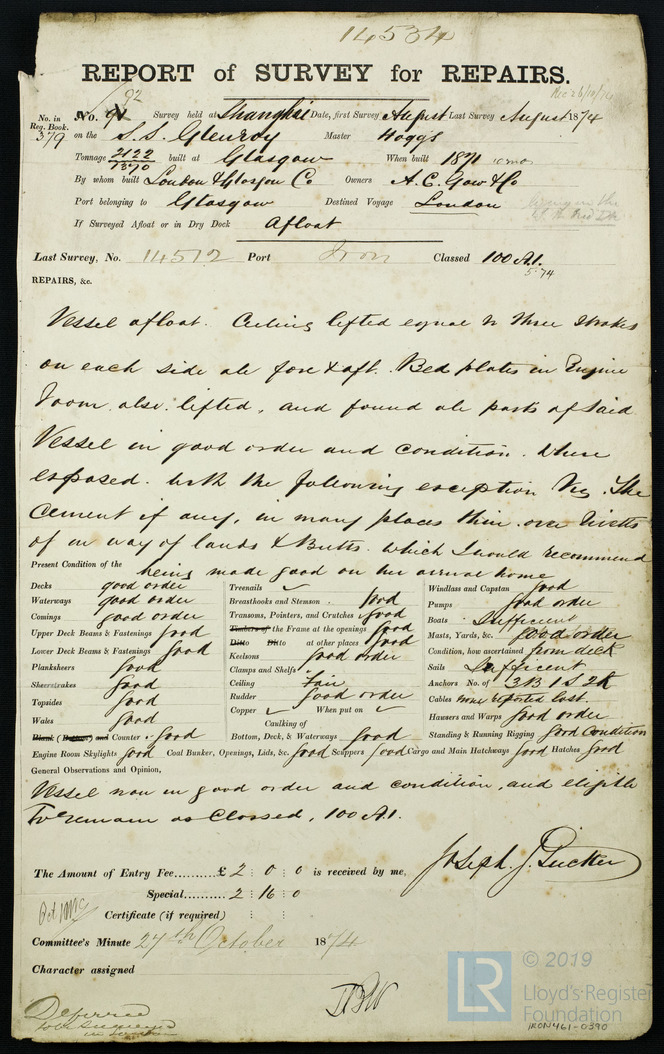 14534
REPORT of SURVEY for REPAIRS.
92
Rec 26/10/74
No. in Reg. Book. 379
No. Survey held at Shanghai Date, first Survey August Last Survey August 1874
on the S.S. Glenroy Master Hogg
Tonnage 2122 / 1370 built at Glasgow When built 1871 10 mo
By whom built London & Glasgow Co Owners A. C. Gow & Co
Port belonging to Glasgow Destined Voyage London
If Surveyed Afloat or in Dry Dock Afloat
Last Survey, No. 14512 Port Iron Classed 100 A.1. 5.74
REPAIRS, &c.
Vessel afloat. Ceiling lifted equal to three strakes
on each side all fore & aft. Bed plates in Engine
Room also lifted, and found all parts of said
Vessel in good order and condition. Where
exposed. with the following exception Viz. The
Cement if any, in many places thin over Rivetts
of in way of lands & Butts. which I would recommend
being made good on her arrival home
Present Condition of the
Decks good order
Waterways good order
Comings good order
Upper Deck Beams & Fastenings good
Lower Deck Beams & Fastenings good
Planksheers good
Sheerstrakes good
Topsides good
Wales good
Plank (Bottom) and Counter good
Treenails ✓
Breasthooks and Stemson good
Transoms, Pointers, and Crutches good
Timbers of the Frame at the openings good
Ditto Ditto at other places good
Keelsons good order
Clamps and Shelfs
Ceiling Fair
Rudder good order
Copper ✓ When put on ✓
Caulking of
Bottom, Deck, & Waterways good
Windlass and Capstan good
Pumps good order
Boats Sufficient
Masts, Yards, &c. good order
Condition, how ascertained from deck
Sails Sufficient
Anchors No. of 3B 1S 2K
Cables none reported lost.
Hawsers and Warps good order
Standing & Running Rigging good condition
Engine Room Skylights good Coal Bunker, Openings, Lids, &c. good Scuppers good Cargo and Main Hatchways good Hatches good
General Observations and Opinion,
Vessel now in good order and condition, and eligible
To remain as Classed, 100 A.1.
The Amount of Entry Fee.......... £ 2 : 0 : 0 is received by me, Joseph J. Tucker
Special.......... 2 : 16 : 0
Certificate (if required) : :
Committee's Minute 27th October 1874
Character assigned
Deferred
to be surveyed
in London
LR © 2019
Lloyd's Register
Foundation
IRON461-0390